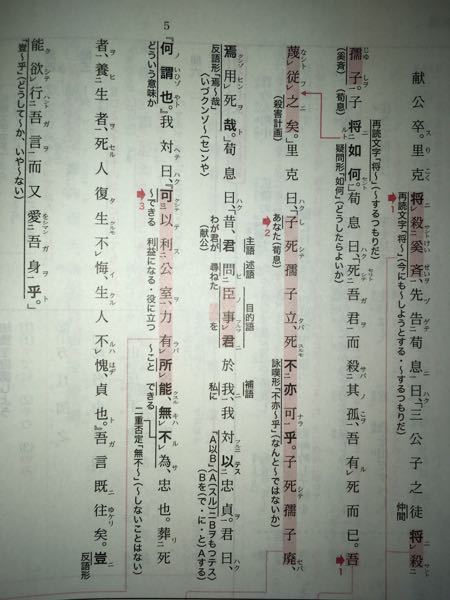 献公卒。里克将殺奚斉、先告荀息曰、三公子之徒将殺
再読文字「将~」(今にも~しようとする・~するつもりだ)
仲間
1
再読文字「将~」(~するつもりだ)
孺子。子将如何。荀息曰、死吾君而殺其孤、吾有死而已。吾
(奚斉)
(荀息)
疑問形「如何」(どうしたらよいか)
1
蔑従之矣。里克曰、子死孺子立、死不亦可乎。子死孺子廃、
(殺害計画)
あなた(荀息)
2
詠嘆形「不亦~乎」(なんと~ではないか)
主語 述語
目的語
補語
焉用死哉。荀息曰、昔、君問臣事君於我、我対以忠貞。君曰、
反語形「焉~哉」
(いづクンゾ~(センや)
わが君が
(献公)
尋ねた
を
私に
「A以B」(A(スル)ニBヲもつテス)
(Bを(で・に・と)Aする)
5
『何謂也。』我対曰、『可以利公室、力有所能、無不為忠也。葬死
どういう意味か
~できる
3
利益になる・役に立つ
~こと
できる
二重否定「無不~」(~しないことはない)
者、養生者、死人復生不悔、生人不愧、貞也。』吾言既往矣。豈
反語形
能欲行吾言而又愛吾身乎。』
「豈~乎」(どうして~か、いや~ない)